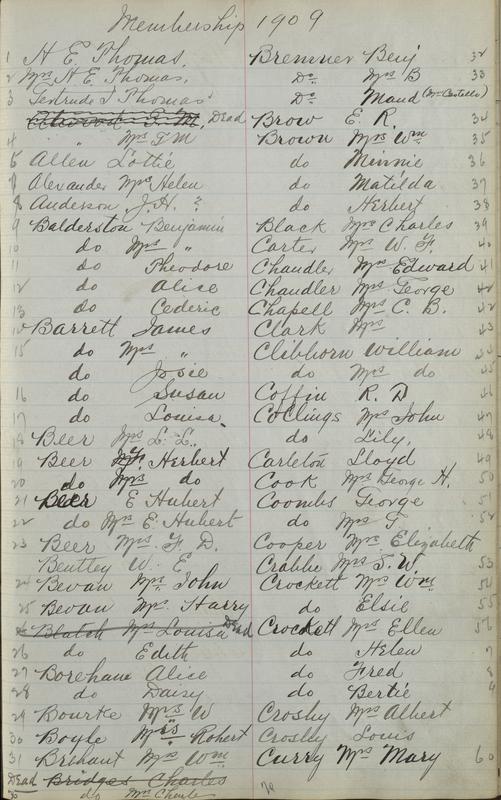 Membership 1909
1 H E. Thomas.
2 Mrs H E. Thomas.
3 Gertrude I Thomas
T. M. Dead
4 " Mrs T M
5 Allen Lottie
7 Alexander Mrs Helen
8 Anderson J. H. "
9 Balderston Benjamin
10 do Mrs "
11 do Theodore
12 do Alice
13 do Cederic
14 Barrett James
15 do Mrs "
do Josie
16 do Susan
17 do Louisa.
18 Beer Mrs L. L.
19 Beer Herbert
20 do Mrs do
21 Beer E Hubert
22 do Mrs E. Hubert
23 Beer Mrs F. D.
Bentley W. E
24 Bevan Mrs John
25 Bevan Mrs Harry
Blatch Mrs Louisa Dead
26 do Edith
27 Borehane Alice
28 do Daisy
29 Bourke Mrs W
30 Boyle Mrs Robert
31 Brehaut Mrs Wm
Dead Bridges Charles
do Mrs Charles
Bremner Benj 32
Do Mrs B 33
Do Maud (Mrs Costello)
Brow E. R. 34
Brown Mrs Wm 35
do Minnie 36
do Matilda 37
do Herbert 38
Black Mrs Charles 39
Carter Mrs W. F. 40
Chandler Mrs Edward 41
Chandler Mrs George 42
Chapell Mrs C. B. 42
Clark Mrs
Clibborn William
do Mrs do 45
Coffin R. D 46
Collings Mrs John 47
do Lily. 48
Carleton Lloyd 49
Cook Mrs George H. 50
Coombs George 51
do Mrs G 52
Cooper Mrs Elizabeth
Crabbe Mrs S. W. 53
Crockett Mrs Wm 54
do Elsie 55
Crockett Mrs Ellen 56
do Helen 7
do Fred 8
do Bertie 9
Crosby Mrs Albert
Crosby Louis
Curry Mrs Mary 60